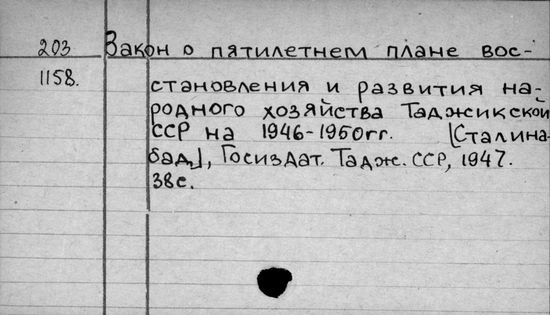 203 Закон о пятилетнем плане вос-
1158. становления и развития на-
родного хозяйства Таджикской
ССР на 1946-1950гг. [Сталина-
бад], Госиздат. Тадж. ССР, 1947.
38с.